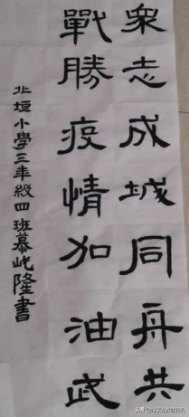 衆志成城同舟共
戰勝疫情加油武
北垣小學三年級四班慕屹隆書